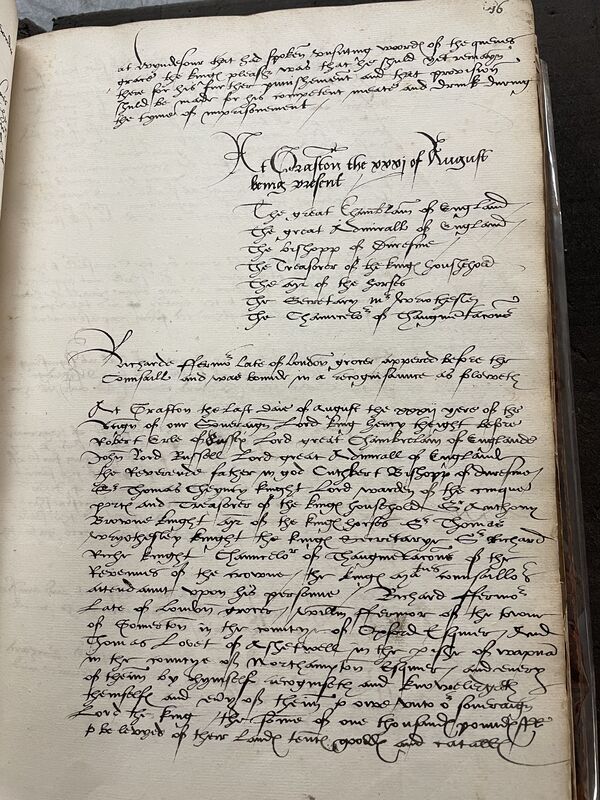 46
at Wyndesour that had spoken unfitting woordes of the quenes
grace the kinges pleasr was that he shuld yet remayn
there for his further punishement and that provision
shuld be made for his competent meate and drink during
the tyme of imprisonement
At Grafton the xxxj of August
being present
The great Chamblain of England
The great Admirall of England
The bishopp of Duresme
The Treasorer of the kinges houshold
The mr of the horses
The Secretary mr Wriothesley
The Chauncelor of Thaugmentacions
Richarde ffermor late of London grocer appered before the
Counsaill and was bounde in a recognisaunce as foloweth
At Grafton the last daie of August the xxxij yere of the
Reign of our Soveraign Lord king Henry theight before
Robert Erle of Sussex Lord great Chamberlain of Englande
John Lord Russell Lord great Admirall of England
the Reverende father in god Cuthbert Bishopp of Duresme
Sr Thomas Cheyney knight Lord warden of the cinque
portes and Treasorer of the kinges household Sr Anthony
Browne knight mr of the kinges horses Sr Thomas
Wryothesley knight the kinges Secretarye Sr Richard
Riche knight Chauncelor of Thaugmentacions of the
Revenues of the crowne the kinges maties counsaillors
attendaunt upon his personne Richard ffermor
Late of London grocer, Willm ffermor of the towne
of Somerton in the countye of Oxford Esquier, And
Thomas Lovet of Astwell in the of
in the countye of Northampton Esquier and every
of them by hymself recogniseth and knowelegeth
themselfes and evy of them to owe unto or soveraign
Lord the king the somme of one thousand poundes
to be levyed of their landes tentes goodes and catalles